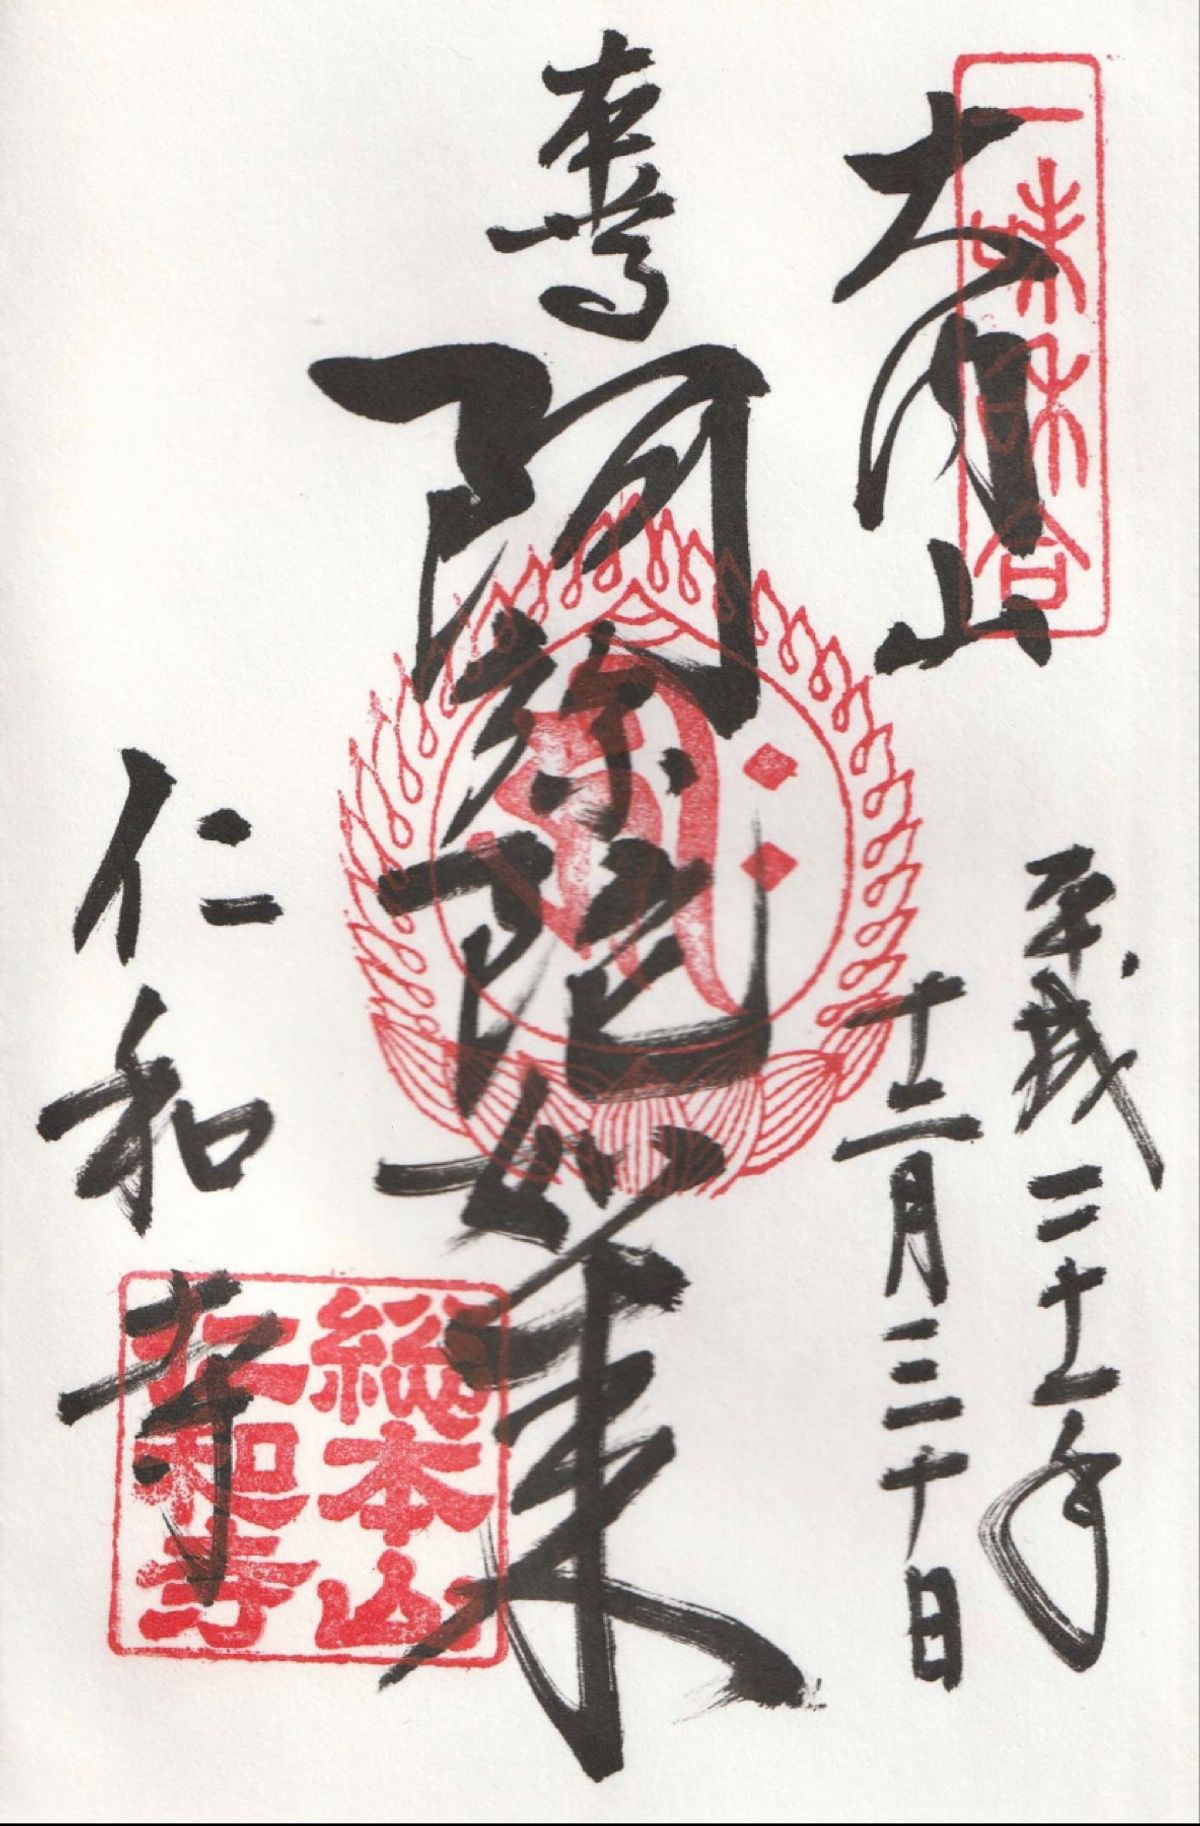 一味和合
大内山
平成二十一年
十二月三十日
本尊
阿弥陀如来
仁和寺
総本山
仁和寺